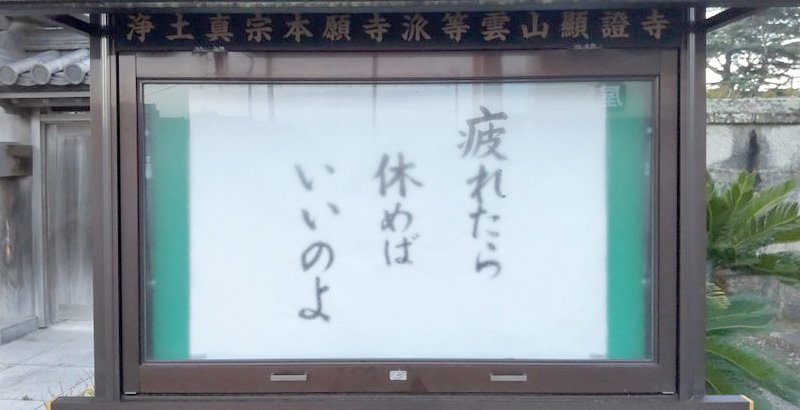 浄土真宗本願寺派等雲山顯證寺
疲れたら
休めば
いいのよ